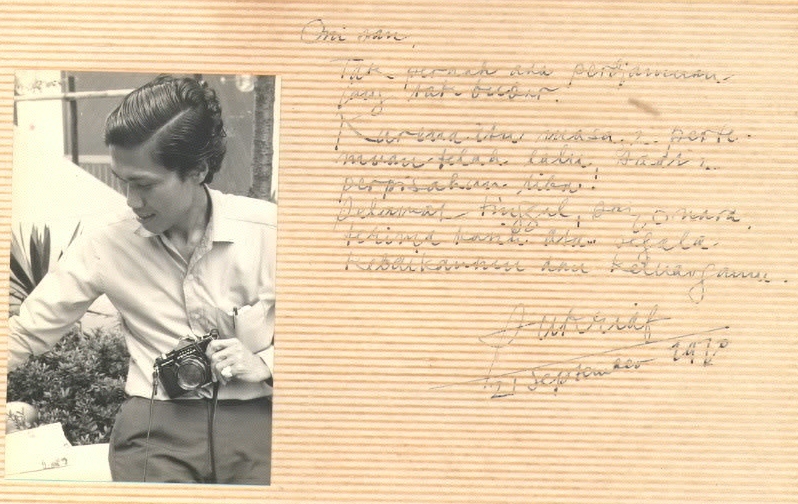 Omi san,
Tak pernah ada perdjamuan
jang tak bubar.
Karena itu masa perte-
muan telah lalu, saat
perpisahan tiba.
Selamat tinggal, sayonara,
terima kasih atas segala
kebaikanmu dan keluargamu.
21 September